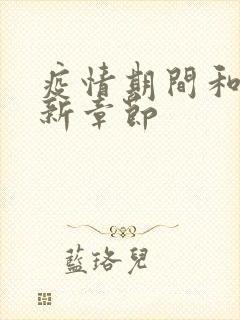 疫情期間和
新章節
藍珞兒